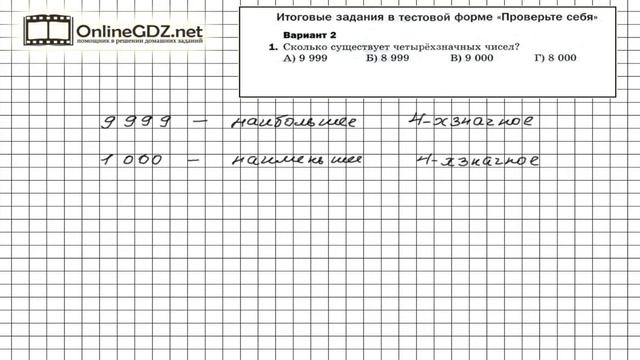 OnlineGDZ.net
помощник в решении домашних заданий
Итоговые задания в тестовой форме «Проверьте себя»
Вариант 2
1. Сколько существует четырёхзначных чисел?
А) 9 999 Б) 8 999 В) 9 000 Г) 8 000
9 999 — наибольшее 4-хзначное
1 000 — наименьшее 4-хзначное